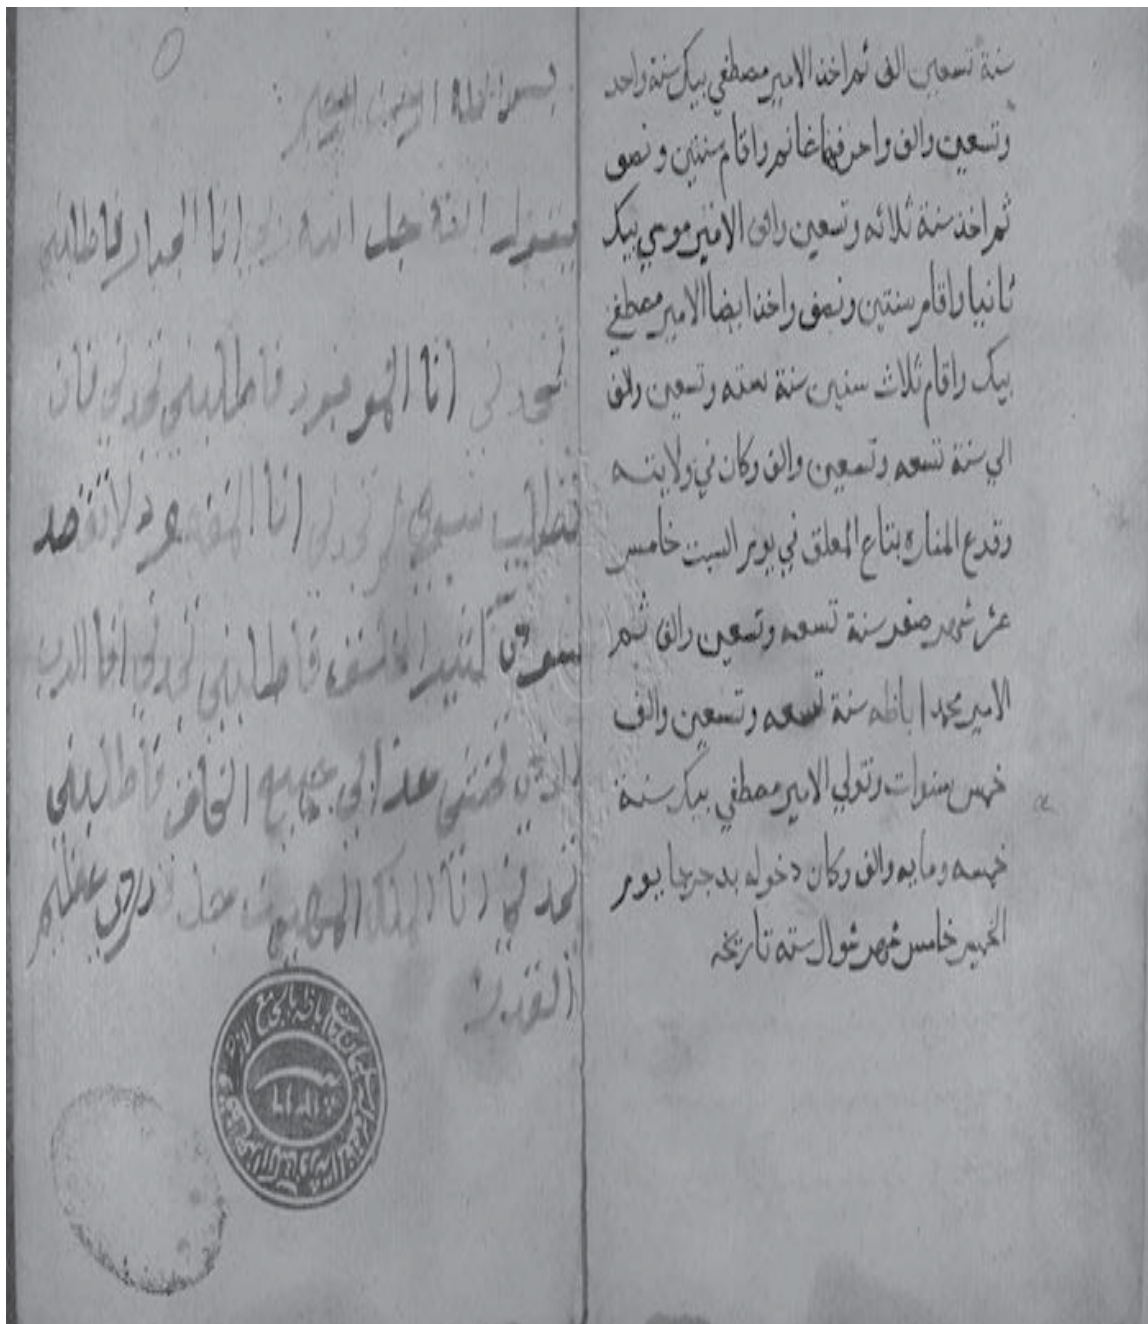 سنة تسعين الف ثم اخذ الامير مصطفي بيك سنة واحد
وتسعين والف واحر فيها غانم واقام سنتين ونصف
ثم اخذ سنة ثلاثه وتسعين والف الامير موسي بيك
ثانيا واقام سنتين ونصف واخذ ايضا الامير مصطفي
بيك واقام ثلاث سنين سنة سته وتسعين والف
الي سنة تسعه وتسعين والف وكان في ولايته
وقدع المناره بتاع المعلق في يوم السبت خامس
عشر شهر صفر سنة تسعه وتسعين والف ثم
الامير محمد اباظه سنة تسعه وتسعين والف
خمس سنوات وتولي الامير مصطفي بيك سنة
خمسه ومايه والف وكان دخوله بدجرجا يوم
الخميس خامس شهر شوال سنة تاريخه
بسم الله الرحمن الرحيم
يقول الله جل انا الجبار فاطلبني
تجدني انا الموجود فاطلبني تجدني فان
تطلب سوي لم تجدني انا المقصود لا تقصد
سوي كثير فاطلبني تجدني انا الرب
عذابي جميع الخلق فاطلبني
تجدني انا الملك المهيمن جل قدري عظيم